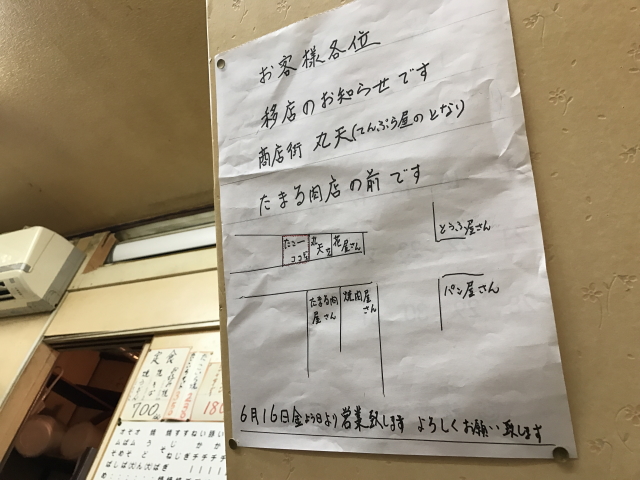 お客様各位
移店のお知らせです
商店街 丸天(てんぷら屋のとなり)
たまる肉店の前です
たこ一
ココ
丸天
花屋さん
とうふ屋さん
たまる肉屋さん
焼肉屋さん
パン屋さん
6月16日金よう日より営業致します よろしくお願い致します
定食
700
180